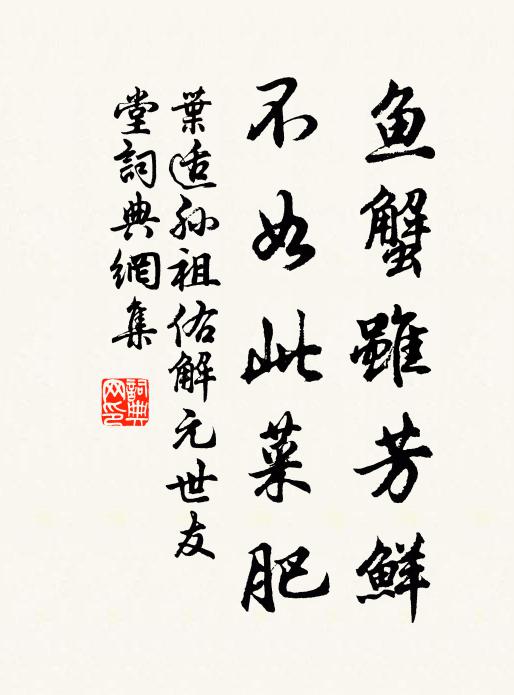 鱼蟹雖芳鮮
不如此菜肥
葉适孫祖佑解元世友
堂詞典網集
詞典网印